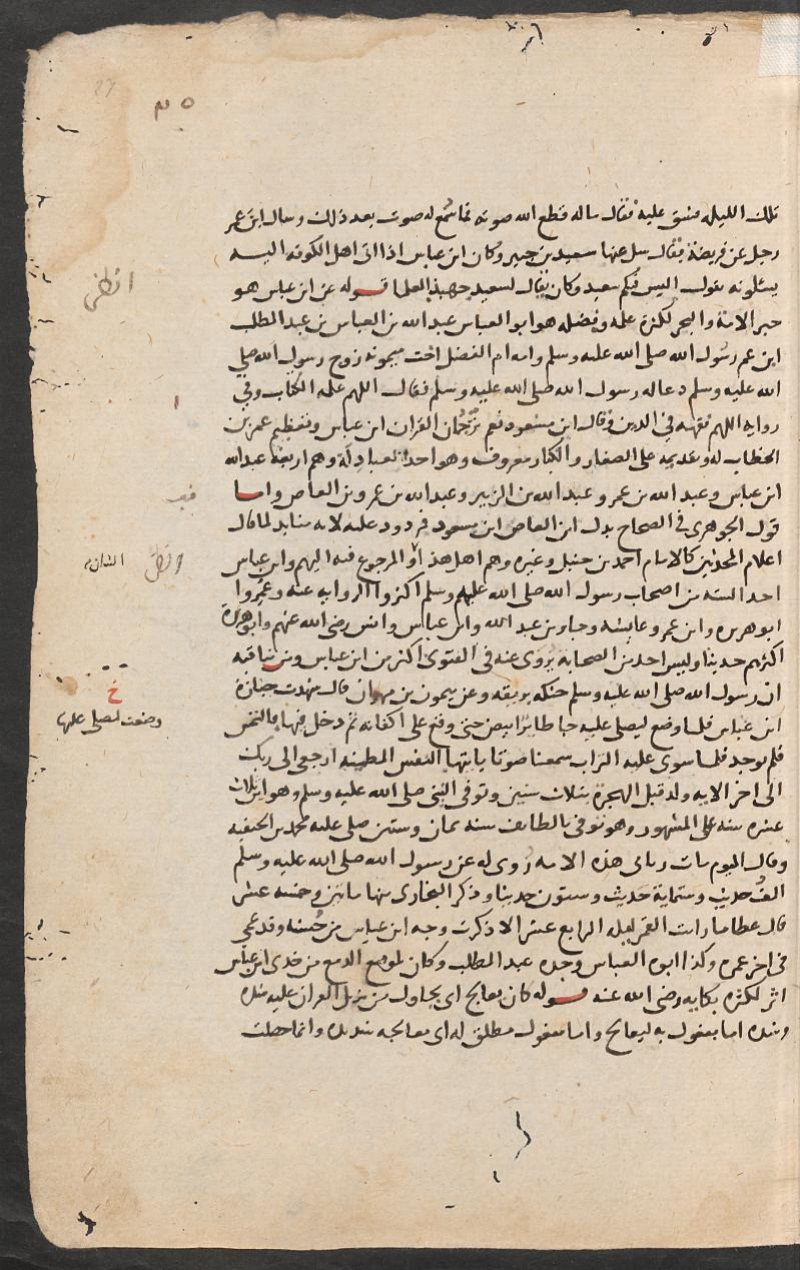 تلك الليله فشق عليه فقال ماله قطع الله صوته فما سُمع له صوت بعد ذلك وسال ابن عمر
رجل عن فريضة فقال سل عنها سعيد بن جبير وكان ابن عباس اذا اتى اهل الكوفه اليه
يسئلونه يقول اليس فيكم سعيد وكان يقال لسعيد جهبذ العلما قوله عن ابن عباس هو
حبر الامة والبحر لكثرة علمه وفضله هو ابو العباس عبد الله بن العباس بن عبد المطلب
ابن عم رسول الله صلى الله عليه وسلم وامه ام الفضل اخت ميمونه زوج رسول الله صلى
الله عليه وسلم دعا له رسول الله صلى الله عليه وسلم فقال اللهم علمه الكتاب وفي
روايه اللهم فقهه في الدين وقال ابن مسعود نعم تَرْجُمان القران ابن عباس وتعظيم عمر بن
الخطاب له وتقديمه على الصغار والكبار معروف وهو احد العبادلة وهم اربعة عبد الله
ابن عباس وعبد الله بن عمر وعبد الله بن الزبير وعبد الله بن عمرو بن العاص واما
قول الجوهري في الصحاح بدل ابن العاص ابن مسعود فمردود عليه لانه منابذ لما قال
اعلام المحدثين كالامام احمد بن حنبل وغيره وهم اهل هذا والمرجوع فيه اليهم وابن عباس
احد السته من اصحاب رسول الله صلى الله عليهم وسلم اكثروا الروايه عنه وعُمِّروا
ابو هريره وابن عمر وعايشه وجابر بن عبد الله وابن عباس وانس رضي الله عنهم وابو هريرة
اكثرهم حديثا وليس احد من الصحابه يروى عنه في الفتوى اكثر من ابن عباس ومن مناقبه
ان رسول الله صلى الله عليه وسلم حنكه بريقه وعن ميمون بن مهران قال شهدت جنازة
ابن عباس فلما وضع ليصلى عليه جا طائر ابيض حتى وقع على اكفانه ثم دخل فيها فالتمس
فلم يوجد فلما سوى عليه التراب سمعنا صوتا يا ايتها النفس المطمينه ارجعي الى ربك
الى اخر الايه ولد قبل الهجرة بثلاث سنين وتوفي النبي صلى الله عليه وسلم وهو ابن ثلاث
عشره سنه على المشهور وهو توفي بالطايف سنه ثمان وستين صلى عليه محمد بن الحنفيه
وقال اليوم مات رباني هذه الامه رُوى له عن رسول الله صلى الله عليه وسلم
الفُ حديث وستماية حديث وستون حديثا وذكر البخارى منها مايتين وخمسه عشر
قال عطا ما رايت القمر ليله الرابع عشر الا ذكرت وجه ابن عباس من حُسنه وقد عمي
في اخر عمره وكذا ابوه العباس وجده عبد المطلب وكان لموضع الدمع من خدى ابن عباس
اثر لكثره بكايه رضي الله عنه قوله كان يعالج اى يحاول من تنزيل القران عليه شده
وشده اما مفعول به ليعالج واما مفعول مطلق له اى معالجه شديده وانما حصلت
خ
وضعت ليصلى عليها